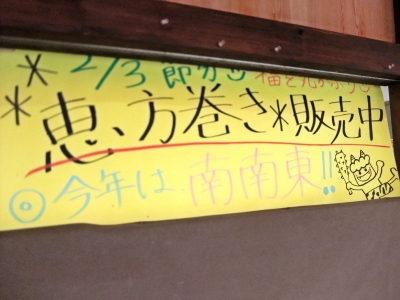 2/3 節分 福を
*恵方巻き*販売中
◎今年は南南東!!